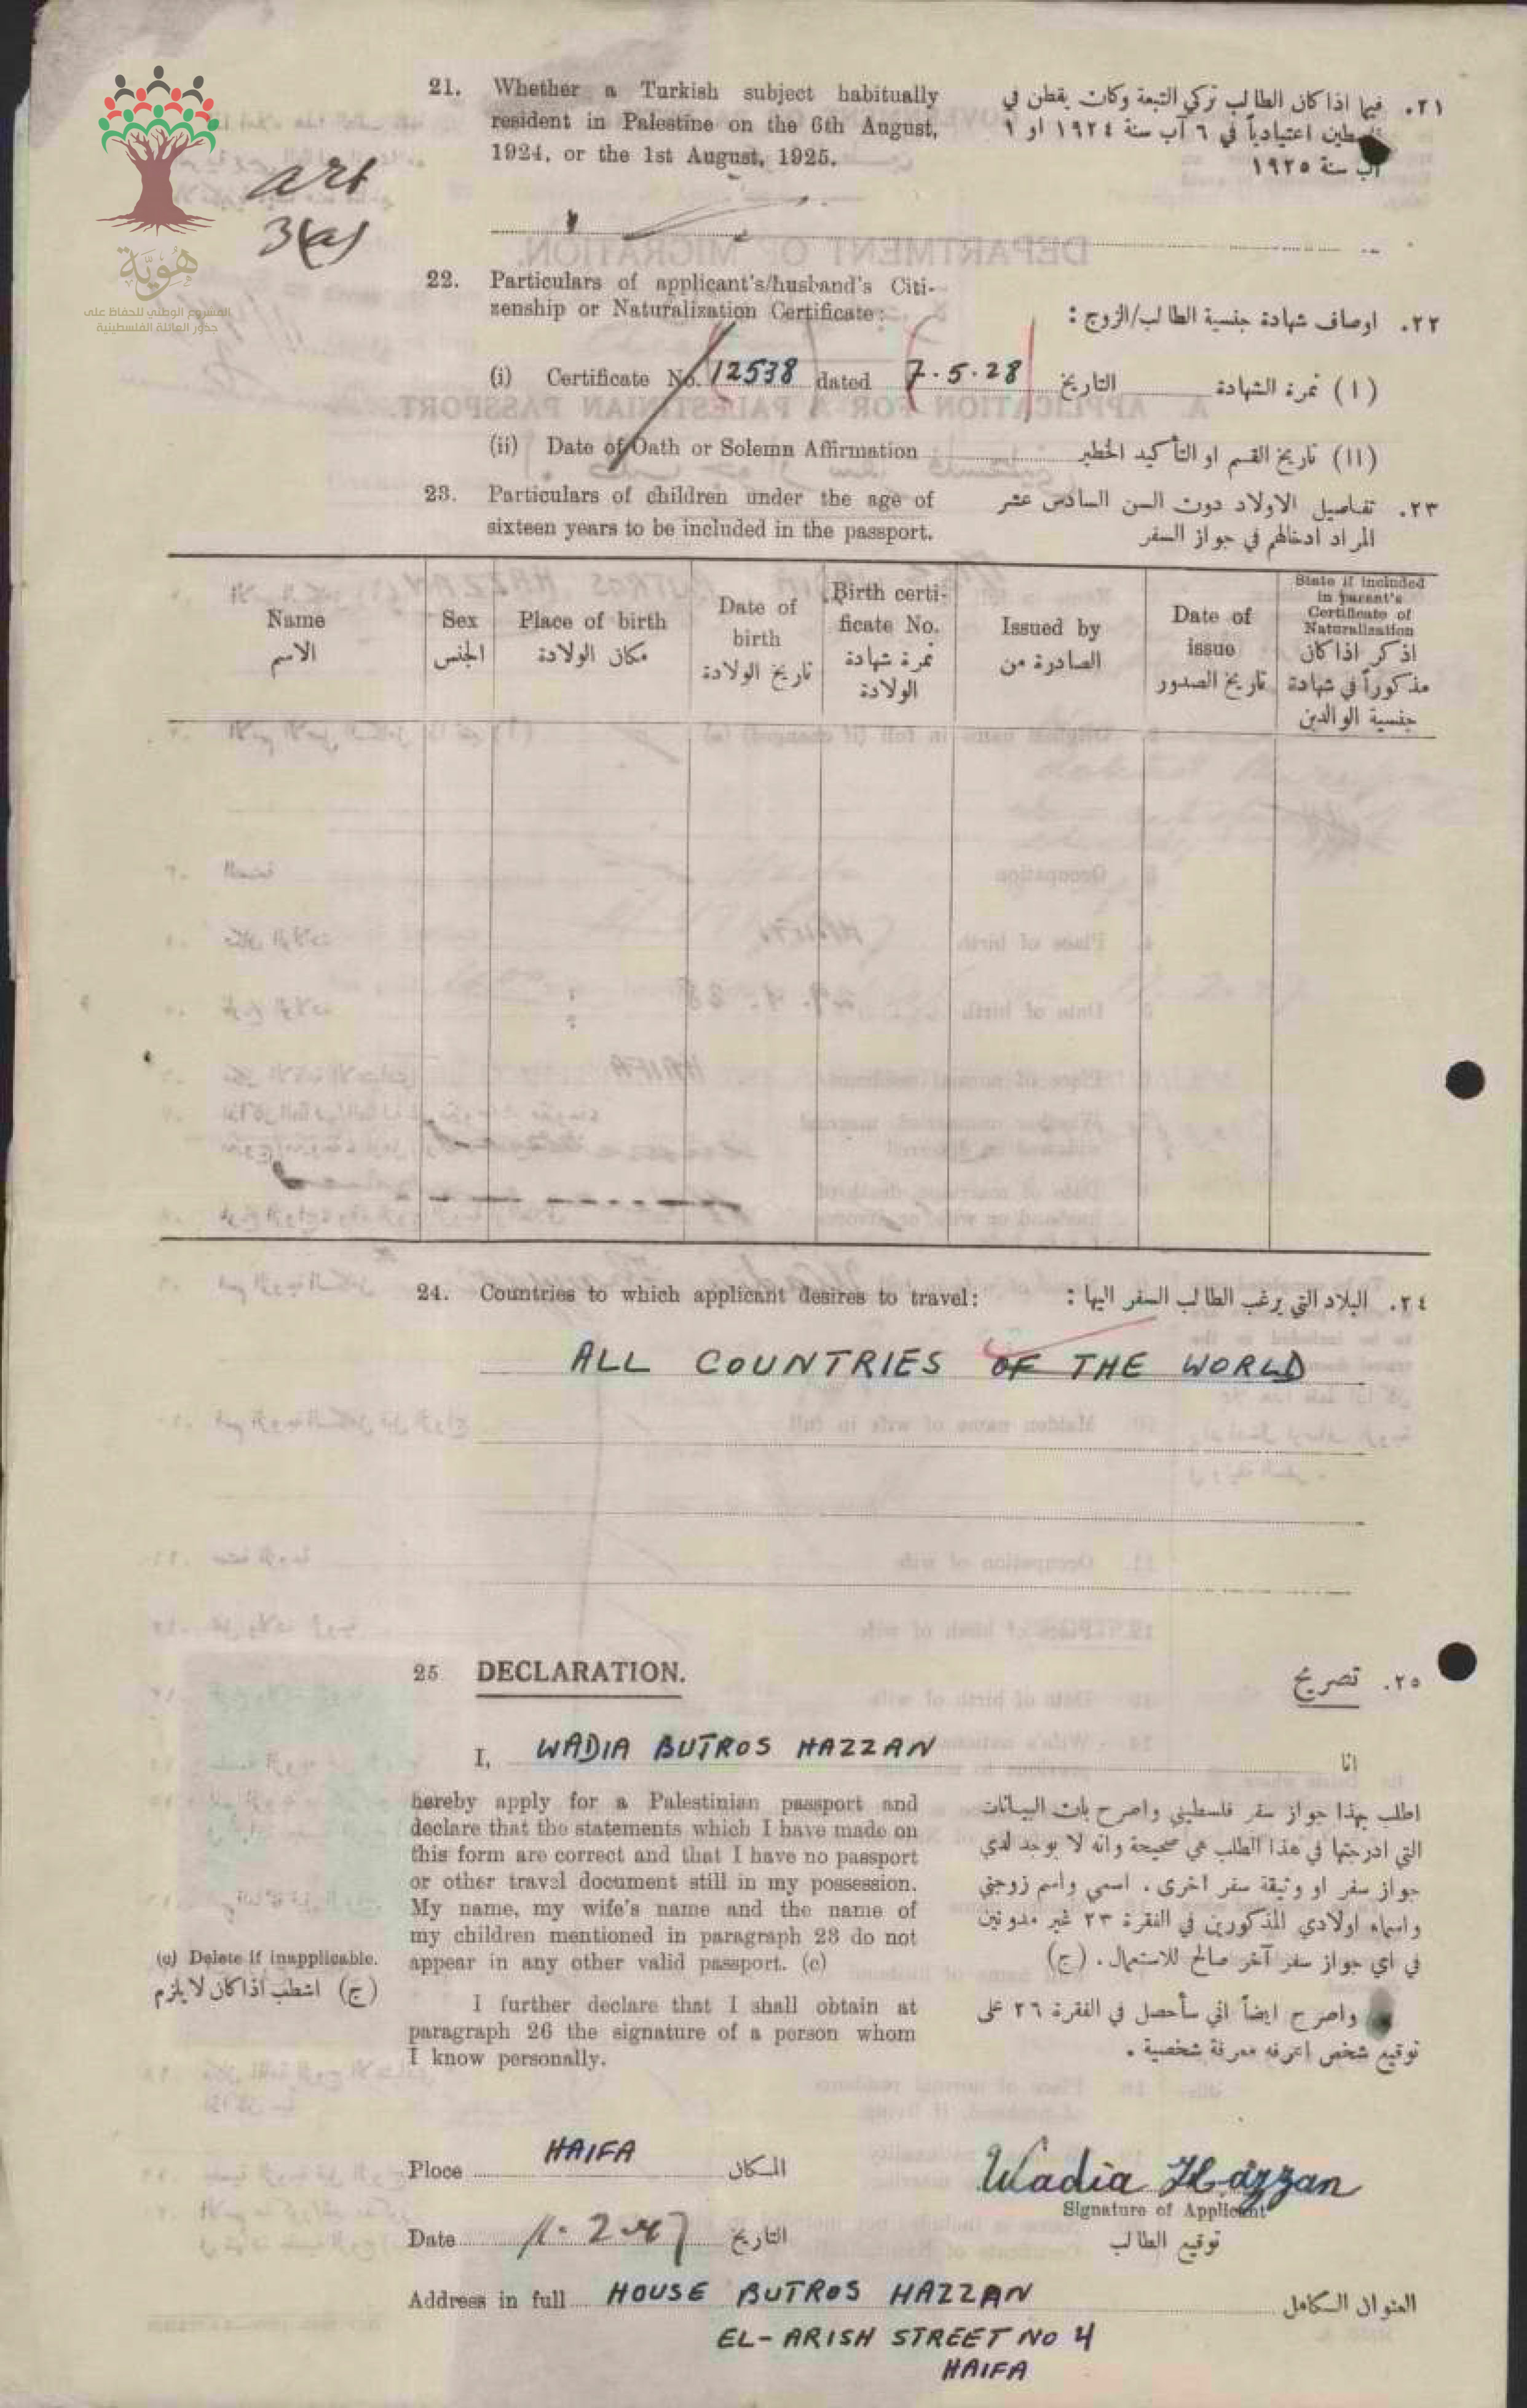 art
3(a)
هُوِيَّة
المشروع الوطني للحفاظ على
جذور العائلة الفلسطينية
21. Whether a Turkish subject habitually
resident in Palestine on the 6th August,
1924, or the 1st August, 1925.
٢١. فيما اذا كان الطالب تركي التبعة وكان يقطن في
فلسطين اعتيادياً في ٦ آب سنة ١٩٢٤ او ١
آب سنة ١٩٢٥
22. Particulars of applicant's/husband's Citi-
zenship or Naturalization Certificate:
٢٢. اوصاف شهادة جنسية الطالب/الزوج :
(i) Certificate No. 12538 dated 7.5.28 التاريخ (I) نمرة الشهادة
(ii) Date of Oath or Solemn Affirmation (II) تاريخ القسم او التأكيد الخطير
23. Particulars of children under the age of
sixteen years to be included in the passport.
٢٣. تفاصيل الاولاد دون السن السادس عشر
المراد ادخالهم في جواز السفر
Name
الاسم
Sex
الجنس
Place of birth
مكان الولادة
Date of
birth
تاريخ الولادة
Birth certi-
ficate No.
نمرة شهادة
الولادة
Issued by
الصادرة من
Date of
issue
تاريخ الصدور
State if included
in parent's
Certificate of
Naturalization
اذكر اذا كان
مذكوراً في شهادة
جنسية الوالدين
24. Countries to which applicant desires to travel: ٢٤. البلاد التي يرغب الطالب السفر اليها :
ALL COUNTRIES OF THE WORLD
25 DECLARATION. ٢٥. تصريح
I, WADIA BUTROS HAZZAN انا
hereby apply for a Palestinian passport and
declare that the statements which I have made on
this form are correct and that I have no passport
or other travel document still in my possession.
My name, my wife's name and the name of
my children mentioned in paragraph 23 do not
appear in any other valid passport. (c)
اطلب بهذا جواز سفر فلسطيني واصرح بان البيانات
التي ادرجتها في هذا الطلب هي صحيحة وانه لا يوجد لدي
جواز سفر او وثيقة سفر اخرى . اسمي واسم زوجتي
واسماء اولادي المذكورين في الفقرة ٢٣ غير مدونين
في اي جواز سفر آخر صالح للاستعمال . (ج)
(c) Delete if inapplicable.
(ج) اشطب اذا كان لا يلزم
I further declare that I shall obtain at
paragraph 26 the signature of a person whom
I know personally.
واصرح ايضاً اني سأحصل في الفقرة ٢٦ على
توقيع شخص اعرفه معرفة شخصية .
Place HAIFA المكان
Wadia Hazzan
Signature of Applicant
توقيع الطالب
Date 11.2.47 التاريخ
Address in full HOUSE BUTROS HAZZAN العنوان الكامل
EL-ARISH STREET NO 4
HAIFA